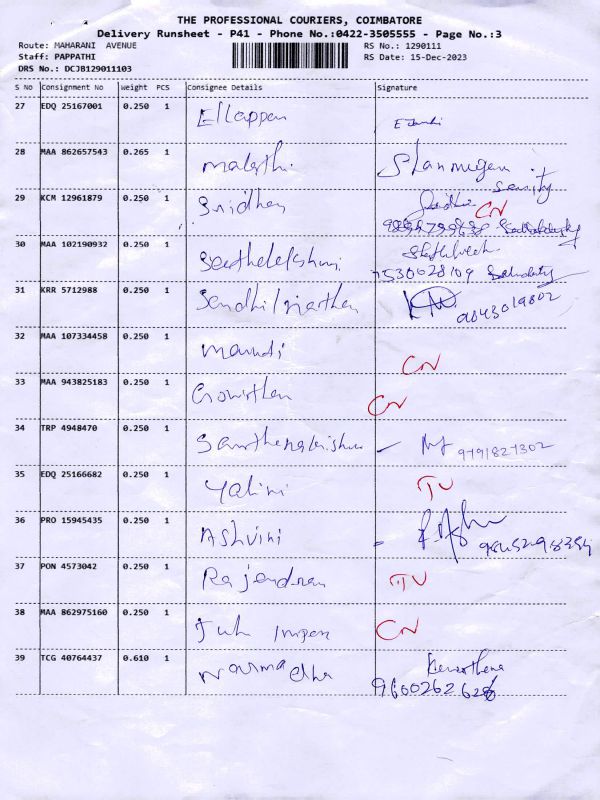 THE PROFESSIONAL COURIERS, COIMBATORE
Delivery Runsheet - P41 - Phone No.:0422-3505555 - Page No.:3
Route: MAHARANI AVENUE RS No.: 1290111
Staff: PAPPATHI RS Date: 15-Dec-2023
DRS No.: DCJB129011103
S No Consignment No Weight PCS Consignee Details Signature
27 EDQ 25167001 0.250 1 Ellappan
28 MAA 862657543 0.265 1 malathi Shanmugam
Security
29 KCM 12961879 0.250 1 Sridhar CN
30 MAA 102190932 0.250 1
7530028109
31 KRR 5712988 0.250 1 9843019802
32 MAA 107334458 0.250 1 CN
33 MAA 943825183 0.250 1 CN
34 TRP 4948470 0.250 1 9791827302
35 EDQ 25166682 0.250 1 Yalini TV
36 PRO 15945435 0.250 1 Ashvini
37 PON 4573042 0.250 1 Rajendran TV
38 MAA 862975160 0.250 1 CN
39 TCG 40764437 0.610 1 Narmadha